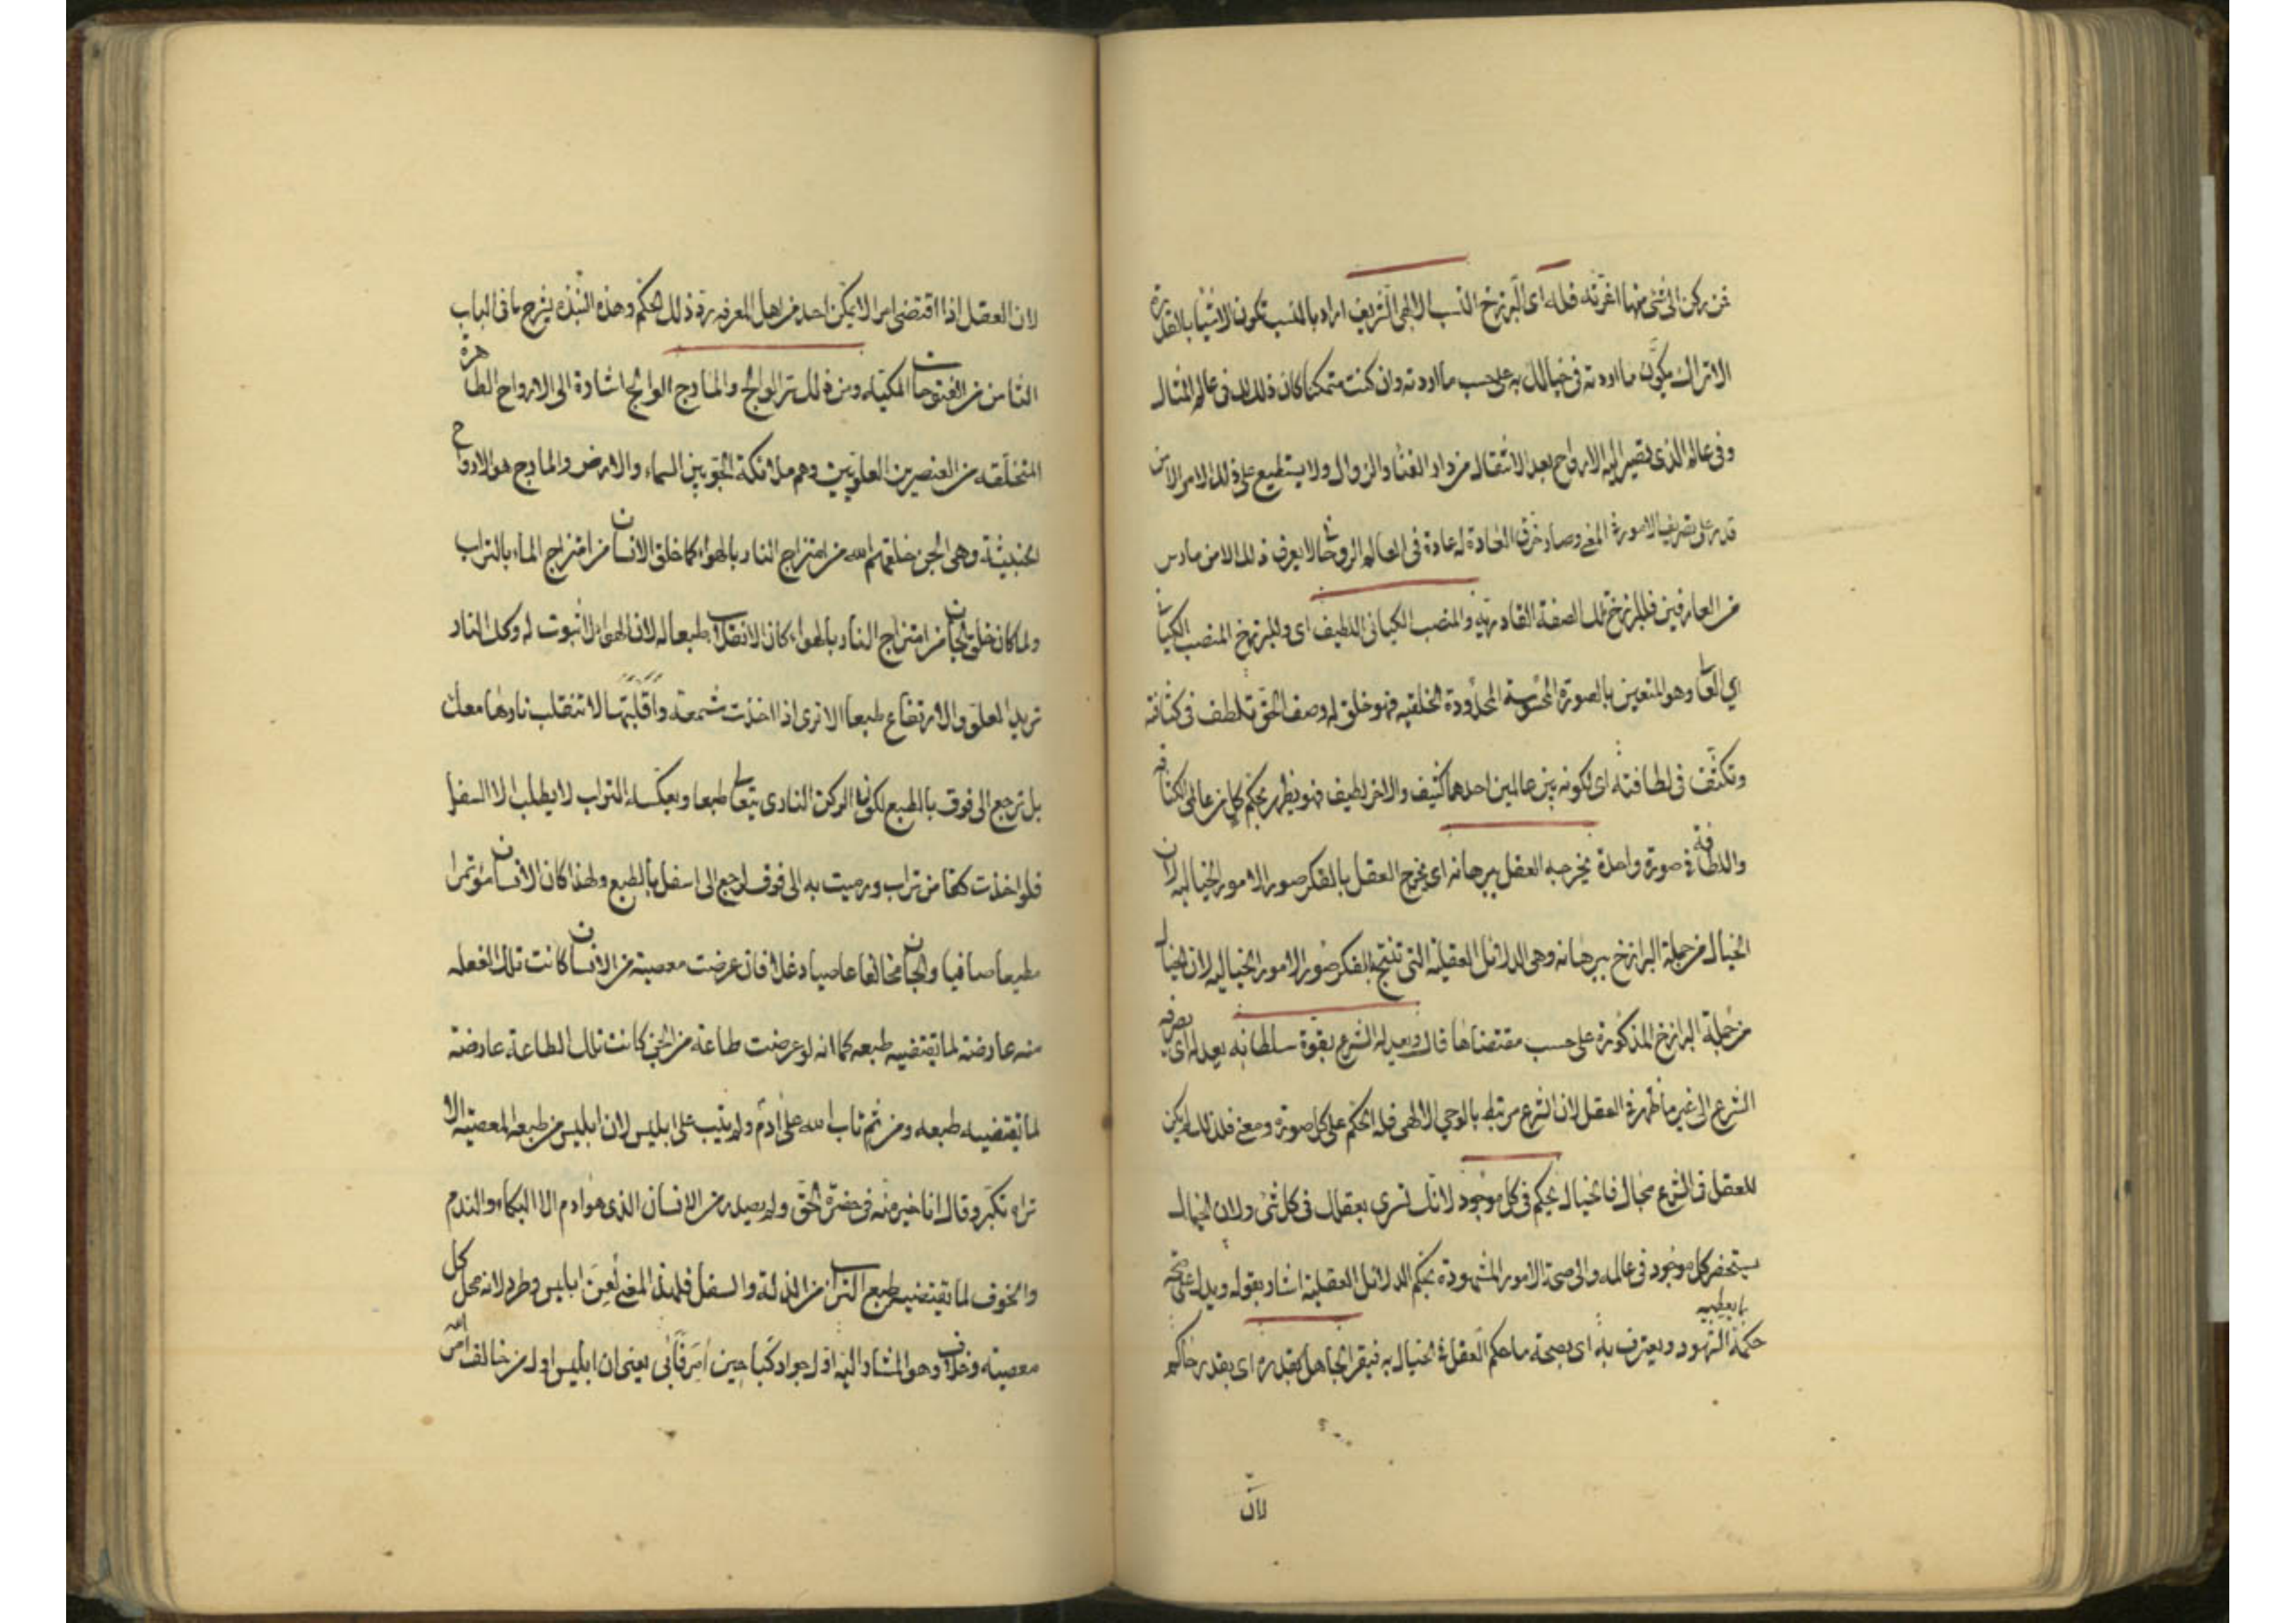 فمن ركن الى شئ منها اغرته فله اى البرزخ النسب الالهى الشريف اراد بالنسب تكون الاشيا بالقدرة
الا تراك يكوّن ما اردته فى خيالك به على حسب ما اردته وان كنت متمكنا كان ذلك لك فى عالم المثال
وفى عالم الذى تصير اليه الارواح بعد الانتقال من دار الفنا والزوال ولا يستطيع على ذلك الامر الا من
قدر على تصريف الامور فى المعنى وصار خرق العادة له عادة فى العالم الروحانى لا يعرف ذلك الا من مارس
من العارفين فللبرزخ تلك الصفة القادرية والمنصب الكيانى اللطيف اى وللبرزخ المنصب الكيانى
اي وهو المتعين بالصورة المحسوسة المحدودة الخلقيه فهو خلق له وصف الحق تلطف فى كثافته
وتكثف فى لطافته اى لكونه بين عالمين احدهما كثيف والاخر لطيف فهو يظهر بحكم كل من عالمى الكثافه
واللطافة فى صورة واحدة يخرجه العقل ببرهانه اى يخرج العقل بالفكر صور الامور الخياليه لان
الخيال من جملة البرازخ ببرهانه وهى الدلائل العقلية التى تنتج بالفكر صور الامور الخياليه لان الخيال
من جملة البرازخ المذكورة على حسب مقتضاها قال ويعدله الشرع بقوة سلطانه يعدله اى يصرفه
الشرع الى غير ما ظهر فى العقل لان الشرع مرتبط بالوحي الالهى فله الحكم على كل صورة ومعنى فلذلك لم يكن
للعقل فى الشرع مجال فالخيال يحكم فى كل موجود لانك تسرى بعقلك فى كل شئ ولان الخيال
يستحضر كل موجود فى عالمه والى صحة الامور المشهودة بحكم الدلائل العقلية اشار بقوله ويدل على صحته
حكمة الشهود ويعترف به اى بصحة ما حكم العقل فى الخيال به فيقر الجاهل بقدره اى بقدر حاكم
بما يعطيه
لان
لان العقل اذا اقتضى امرا لا يمكن احد من اهل المعرفه رد ذلك الحكم وهذه النبذه يشرح ما فى الباب
الثامن من الفتوحات المكيه ومن ذلك سر الوالج والمارج الوالج اشارة الى الارواح الطاهرة
المتخلقه من العنصرين العلويين وهم ملائكة الجو بين السماء والارض والمارج هو الارواح
الخبيثة وهى الجن خلقهم الله من امتزاج النار بالهواء كما خلق الانسان من امتزاج الماء بالتراب
ولما كان خلق الجان من امتزاج النار بالهواء كان الانقلاب طبعا له لان الهواء لا ثبوت له وكل النار
تريد العلو والارتفاع طبعا الا ترى اذا اخذت شمعة واقلبتها لا تنقلب نارها معك
بل ترجع الى فوق بالطبع لكون الركن النارى يتعالى طبعا وبعكسه التراب لا يطلب الا السفل
فلو اخذت كفا من تراب ورميت به الى فوق لرجع الى اسفل بالطبع ولهذا كان الانسان مؤتمرا
مطيعا صافيا والجان مخالفا عاصيا دغلا فان عرضت معصية من الانسان كانت تلك الفعله
منه عارضة لما تقتضيه طبعه كما انه لو عرضت طاعة من الجن كانت تلك الطاعة عارضة
لما تقتضيه طبعه ومن ثم تاب الله على ادم ولم يتب على ابليس لان ابليس من طبعه المعصية الا
تراه تكبر وقال انا خير منه فى حضرة الحق ولم يصدر من الانسان الذى هو ادم الا البكاء والندم
والخوف لما تقتضيه طبع التراب من الذلة والسفل فلهذا المعنى لُعِن ابليس وطرد لانه محل كل
معصيته وخلاف وهو المشار اليه اول جواد كبا حين اُمِرَ فأبى يعنى ان ابليس اول من خالف امر الله